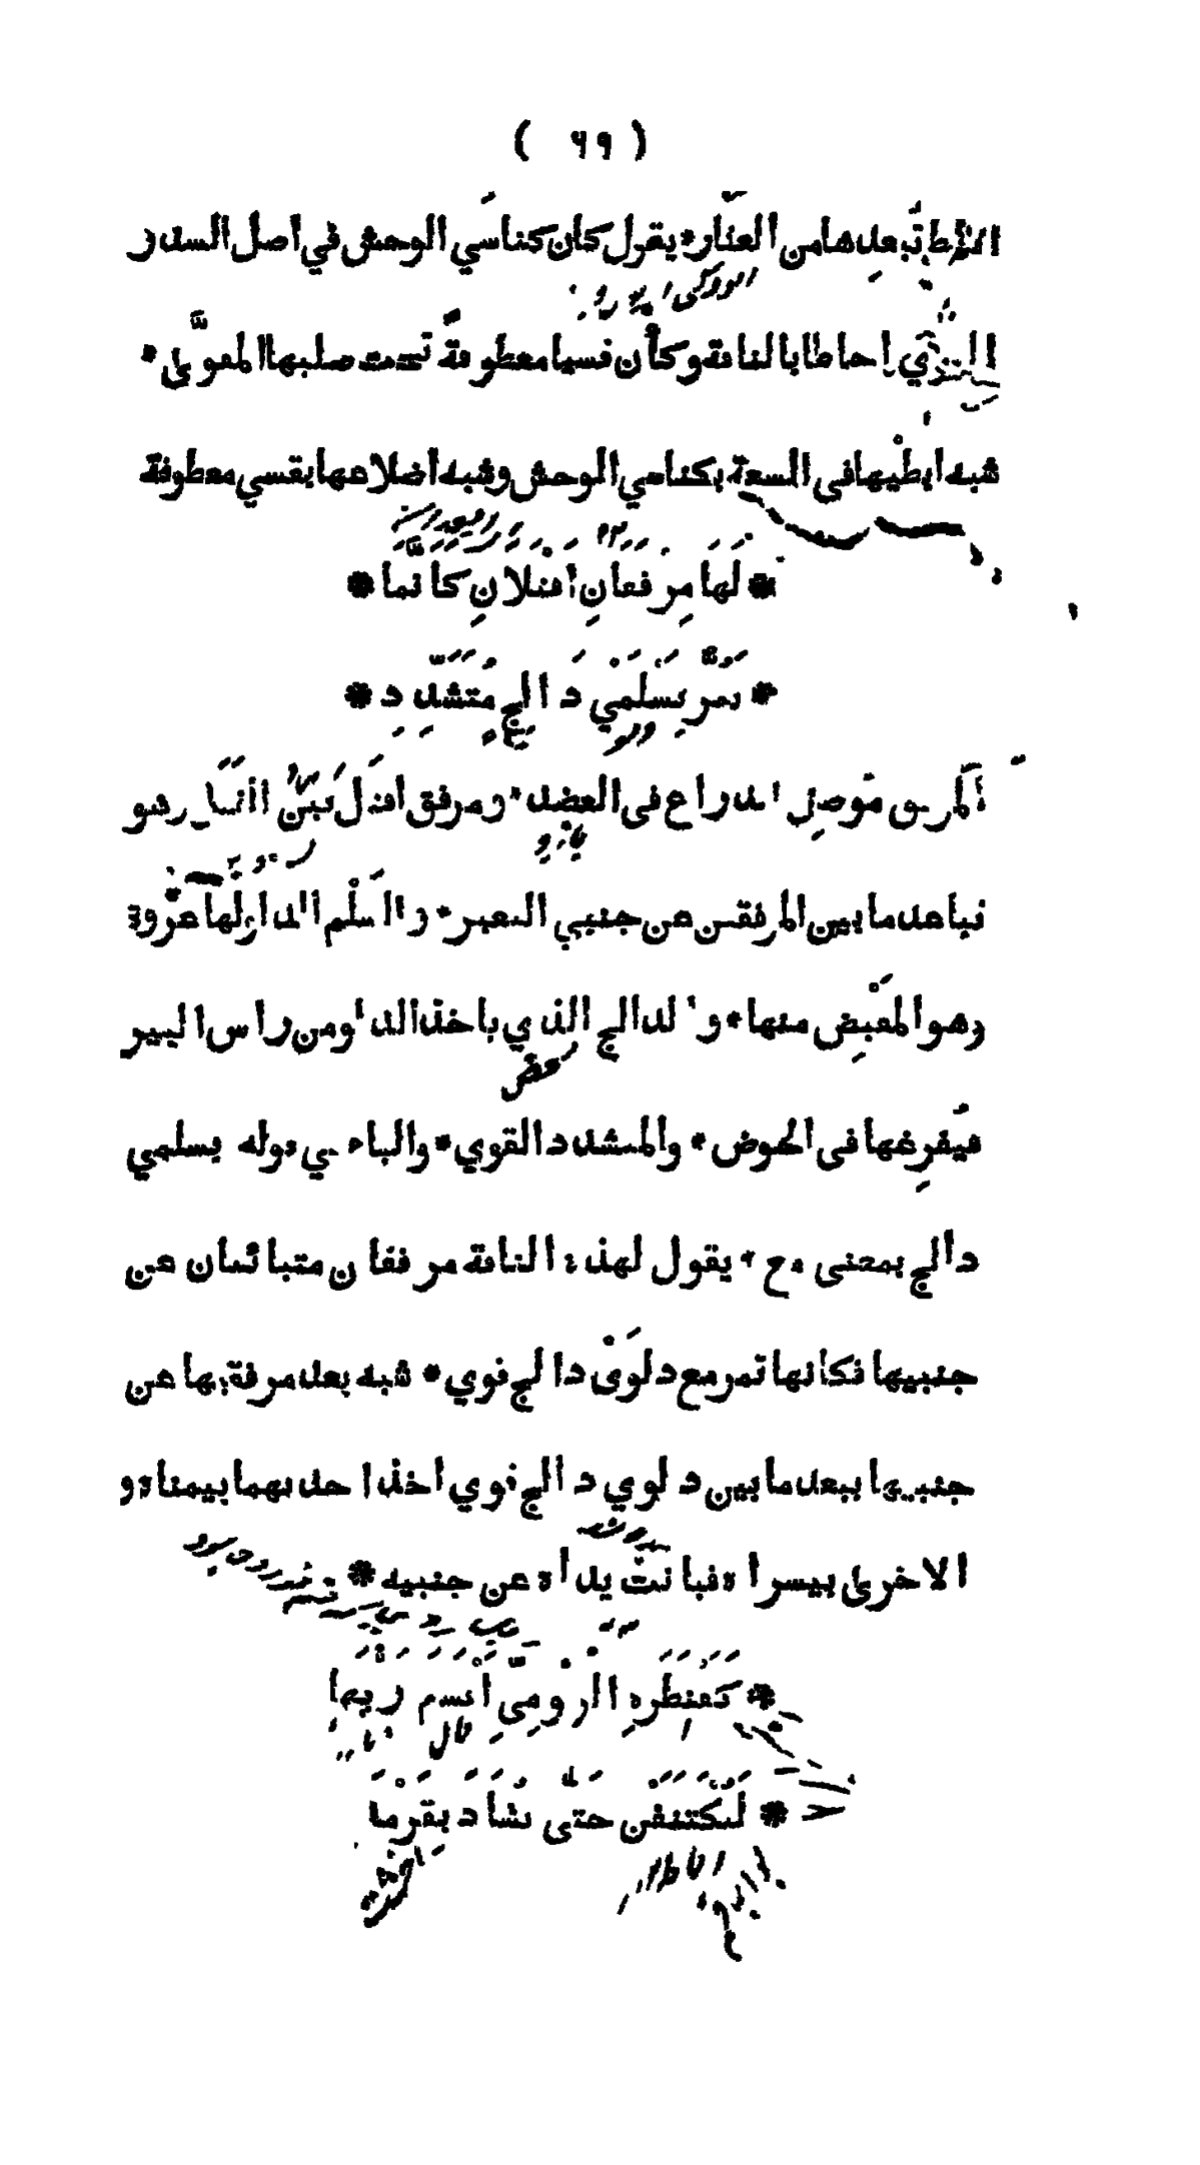 ( ٦٩ )
الابط تبعدها من العثار * يقول كان كناسي الوحش في اصل السدر
البري احاطا بالناقة وكأن قسيا معطوفة تحت صلبها المقوى *
شبه ابطيها فى السعة بكناسي الوحش وشبه اضلاعها بقسي معطوفة
* لَهَا مِرْفَقَانِ أَفْتَلَانِ كَأَنَّمَا *
* تَمُرُّ بِسَلْمَيْ دَالِجٍ مُتَشَدِّدِ *
المرفق موصل الذراع فى العضد * ومرفق افتل بين الفتل وهو
تباعد ما بين المرفقين عن جنبي البعير * والسلم الدلو لها عروة
وهو المقبض منها * والدالج الذي ياخذ الدلو من راس البير
فيفرغها فى الحوض * والمتشدد القوي * والباء في قوله بسلمي
دالج بمعنى مع * يقول لهذه الناقة مرفقان متبائنان عن
جنبيها فكانها تمر مع دلوى دالج قوي * شبه بعد مرفقيها عن
جنبيها ببعد ما بين دلوي دالج قوي اخذ احدىهما بيمناه و
الاخرى بيسراه فبانت يداه عن جنبيه *
* كَقَنْطَرَةِ الرُّومِيِّ أَقْسَمَ رَبُّهَا
* لَتُكْتَنَفَنْ حَتَّى تُشَادَ بِقَرْمَدِ